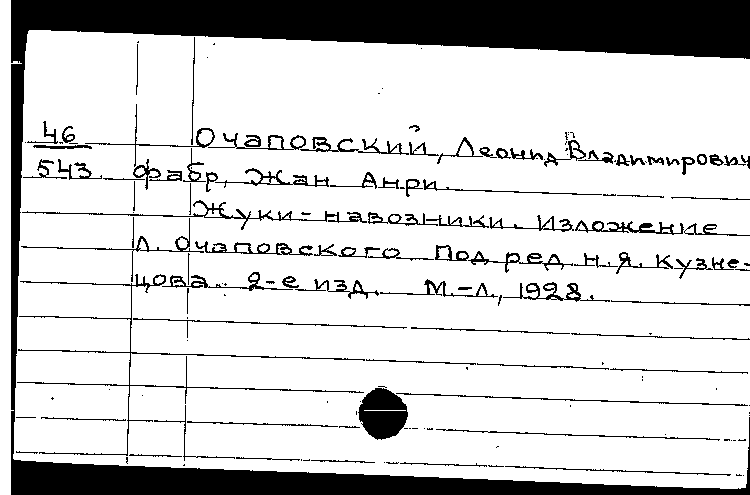 46 Очаповский, Леонид Владимирович
543. Фабр, Жан Анри.
Жуки-навозники. Изложение
Л. Очаповского. Под ред. Н.Я. Кузне-
цова. 2-е изд. М.-Л., 1928.